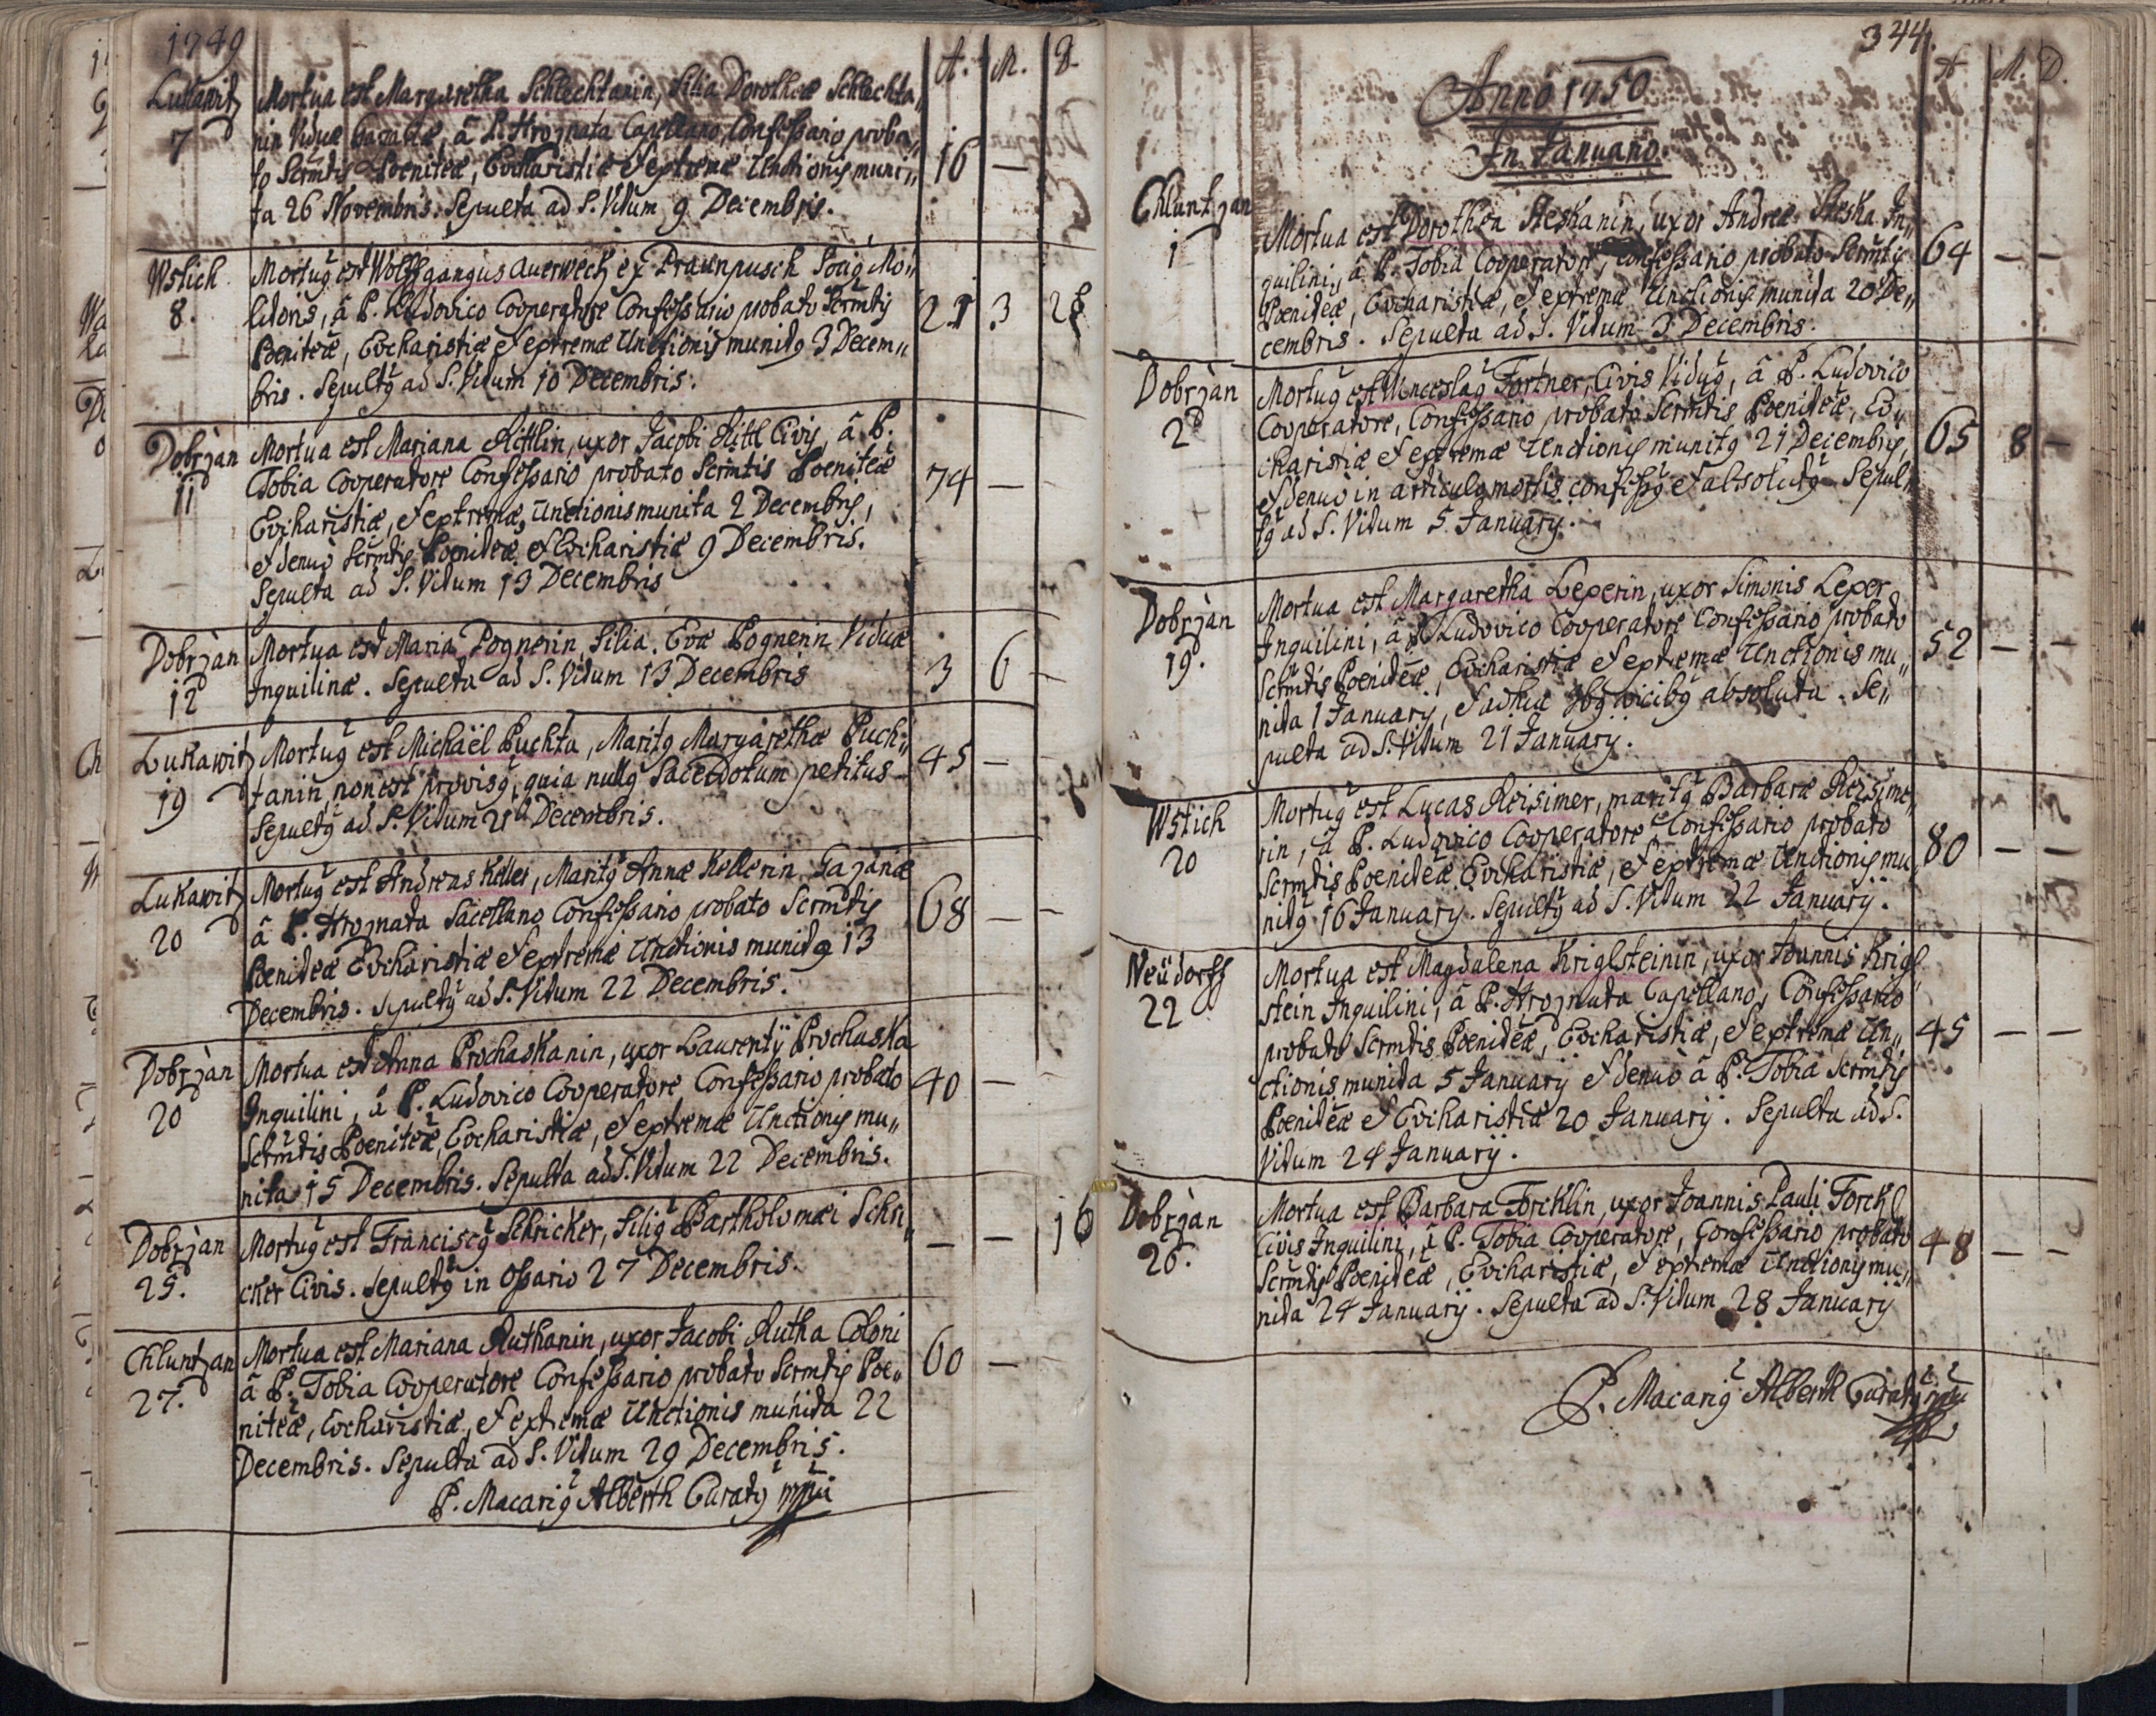 1749
A. M. D.
Lukawitz Mortua est Margaretha Schlechtanin, filia Dorotheæ Schlechta„
7 nin Viduæ, â P. Hroznata Capellano, Confeßario proba„
to Scrmtis Poeniteæ, Eucharistiæ et extremæ Unctionis muni„ 16 —
ta 26 Novembris. Sepulta ad S. Vitum 9 Decembris.
Wstich Mortuus est Wolffgangus Auerweck ex Praunpusch Socius Mo„
8. litoris, â P. Ludovico Cooperatore Confeßario probato Scrmtis 21 3 28
Poeniteæ, Eucharistiæ et extremæ Unctionis munitus 3 Decem„
bris. Sepultus ad S. Vitum 10 Decembris.
Dobrzan Mortua est Mariana Kittlin, uxor Jacobi Kittl Civis, â P.
11 Tobia Cooperatore Confeßario probato Scrmtis Poeniteæ 74 —
Eucharistiæ, et extremæ Unctionis munita 2 Decembris,
et denuò Scrmtis Poeniteæ et Eucharistiæ 9 Decembris.
Sepulta ad S. Vitum 13 Decembris
Dobrzan Mortua est Maria Pognerin, filia Evæ Pognerin Viduæ
12 Inquilinæ. Sepulta ad S. Vitum 13 Decembris 3 6 —
Lukawitz Mortuus est Michaël Puchta, Maritus Margarethæ Puch„ 45 —
19 tanin, non est provisus, quia nullus Sacerdotum petitus
Sepultus ad S. Vitum 21 Decembris.
Lukawitz Mortuus est Andreas Keller, Maritus Annæ Kellerin
20 â P. Hroznata Sacellano Confeßario probato Scrmtis 68 — —
Poeniteæ Eucharistiæ et extremæ Unctionis munitus 13
Decembris. Sepultus ad S. Vitum 22 Decembris.
Dobrzàn Mortua est Anna Prochaskanin, uxor Laurentÿ Prochaska
20 Inquilini, â P. Ludovico Cooperatore Confeßario probato 40 —
Scrmtis Poeniteæ, Eucharistiæ, et extremæ Unctionis mu„
nita 15 Decembris. Sepulta ad S. Vitum 22 Decembris.
Dobrzan Mortuus est Franciscus Schricker, filius Bartholomæi Schri„ — — 16
25. cker Civis. Sepultus in Oßario 27 Decembris.
Chluntzan Mortua est Mariana Ruthanin, uxor Jacobi Rutha Coloni 60 —
27. â P. Tobia Cooperatore Confeßario probato Scrmtis Poe„
niteæ, Eucharistiæ, et extremæ Unctionis munita 22
Decembris. Sepulta ad S. Vitum 29 Decembris.
P. Macarius Alberth Curatus mpia
344.
A. M. D.
Anno 1750
In Januario.
Chluntzan Mortua est Dorothea Steskanin, uxor Andreæ Steska In„
1 quilini, â P. Tobia Cooperatore, Confeßario probato Scrmtis 64 — —
Poeniteæ, Eucharistiæ, et extremæ Unctionis munita 20 De„
cembris. Sepulta ad S. Vitum 3 Decembris.
Dobrzan Mortuus est Wenceslaus Fortner, Civis Viduus, â P. Ludovico
2 Cooperatore, Confeßario probato Scrmtis Poeniteæ, Eu„
charistiæ et extremæ Unctionis munitus 21 Decembris, 65 8 —
et denuò in articulo mortis confeßus et absolutus Sepul„
tus ad S. Vitum 5 January.
Dobrzàn Mortua est Margaretha Leperin, uxor Simonis Leper
19. Inquilini, â P. Ludovico Cooperatore Confeßario probato 52 — —
Scrmtis Poeniteæ, Eucharistiæ et extremæ Unctionis mu„
nita 1 January, et adhuc vicibus absoluta. Se„
pulta ad S. Vitum 21 January.
Wstich Mortuus est Lucas Reisimer, maritus Barbaræ Reisime„
20 rin, â P. Ludovico Cooperatore Confeßario probato 80 — —
Scrmtis Poeniteæ Eucharistiæ, et extremæ Unctionis mu„
nitus 16 January. Sepultus ad S. Vitum 22 January.
Neüdorff Mortua est Magdalena Kriglsteinin, uxor Joannis Krigl„
22 stein Inquilini, â P. Hroznata Capellano, Confeßario
probato Scrmtis Poeniteæ, Eucharistiæ, et extremæ Un„ 45 — —
ctionis munita 5 January et denuò â P. Tobia Scrmtis
Poeniteæ et Eucharistiæ 20 January. Sepulta ad S.
Vitum 24 January.
Dobrzàn Mortua est Barbara Forcklin, uxor Joannis Pauli Forckl
26. Civis Inquilini, â P. Tobia Cooperatore, Confeßario probato 48 — —
Scrmtis Poeniteæ, Eucharistiæ, et extremæ Unctionis mu„
nita 24 January. Sepulta ad S. Vitum 28 January
P. Macarius Alberth Curatus mpia